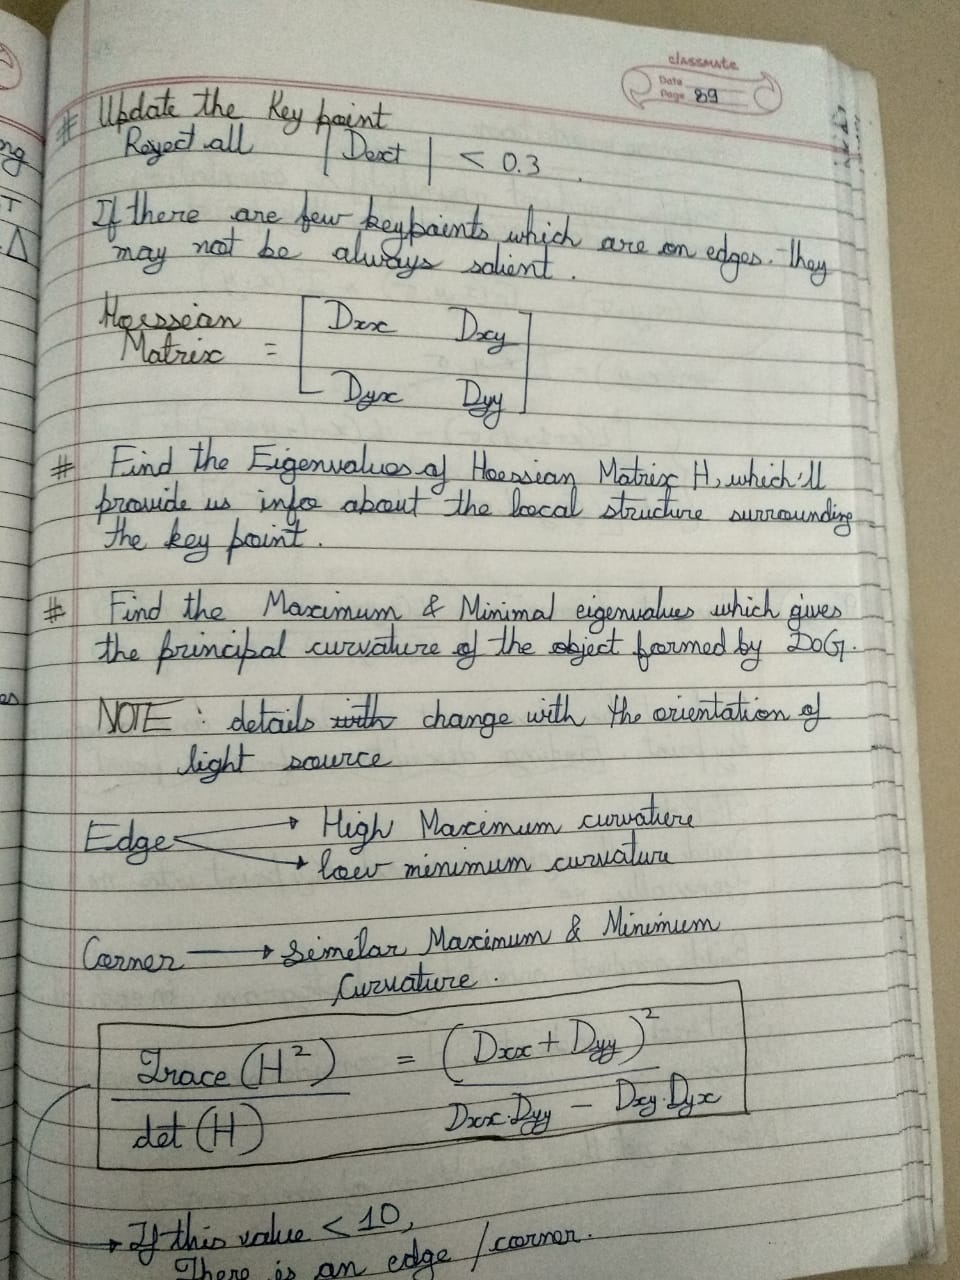 classmate
Date
Page 89
# Update the Key point
Reject all |Dext| < 0.3.
If there are few keypoints which are on edges. They
may not be always salient.
Hoessian
Matrix = [ Dxx Dxy
Dyx Dyy ]
# Find the Eigenvalues of Hoessian Matrix H, which'll
provide us info about the local structure surrounding
the key point.
# Find the Maximum & Minimal eigenvalues which gives
the principal curvature of the object formed by DoG.
NOTE : details with change with the orientation of
light source
Edge → High Maximum curvature
→ low minimum curvature
Corner → Similar Maximum & Minimum
Curvature.
Trace (H²) = (Dxx + Dyy)²
det (H) Dxx.Dyy - Dxy.Dyx
→ If this value < 10,
There is an edge / corner.
ng
T
Δ
es